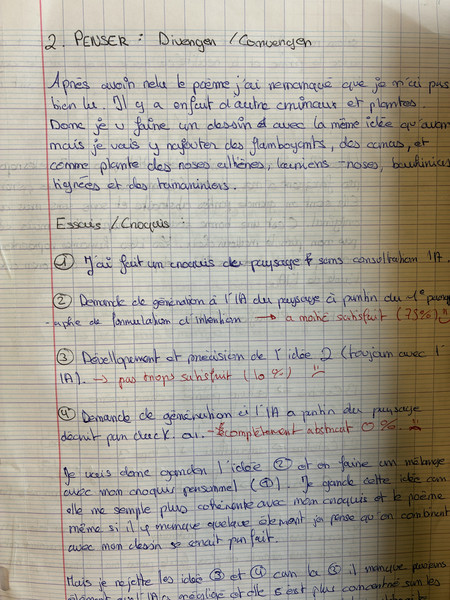 2. PENSER : Diverger / Converger
Après avoir relu le poème j'ai remarqué que je n'ai pas
bien lu. Il y a enfait d'autre animaux et plantes.
Donc je v faire un dessin avec la même idée qu'avant
mais je vais y rajouter des flamboyants, des canas, et
comme plante des roses altières, lauriers-roses, bauhinias
lignées et des tamariniers.
Essais / Croquis :
① J'ai fait un croquis du paysage sans consultation IA.
② Demande de génération à l'IA du paysage à partir du 1e parag
-raphe de formulation d'intention → a moitié satisfait (75%)
③ Dévellopement et précision de l'idée 2 (toujours avec l'
IA). → pas trops satisfait (10%)
④ Demande de génération à l'IA a partir du paysage
décrit par ai. → complètement abstrait 0%.
Je vais donc garder l'idée ② et en faire un mélange
avec mon croquis personnel (①). Je garde cette idée car
elle me semple plus cohérente avec mon croquis et le poème
même si il y manque quelque élement je pense qu'en combinant
avec mon dessin se serait parfait.
Mais je rejette les idée ③ et ④ car la ③ il manque plusieurs
élément que l'IA a négligé et elle s'est plus concentré sur les